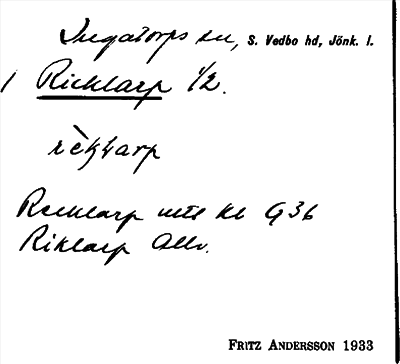 Ingatorps sn, S. Vedbo hd, Jönk. l.
/ Ricktarp 1/2.
rècktarp
Recktarp utl kl G36
Riktarp Allv.
FRITZ ANDERSSON 1933